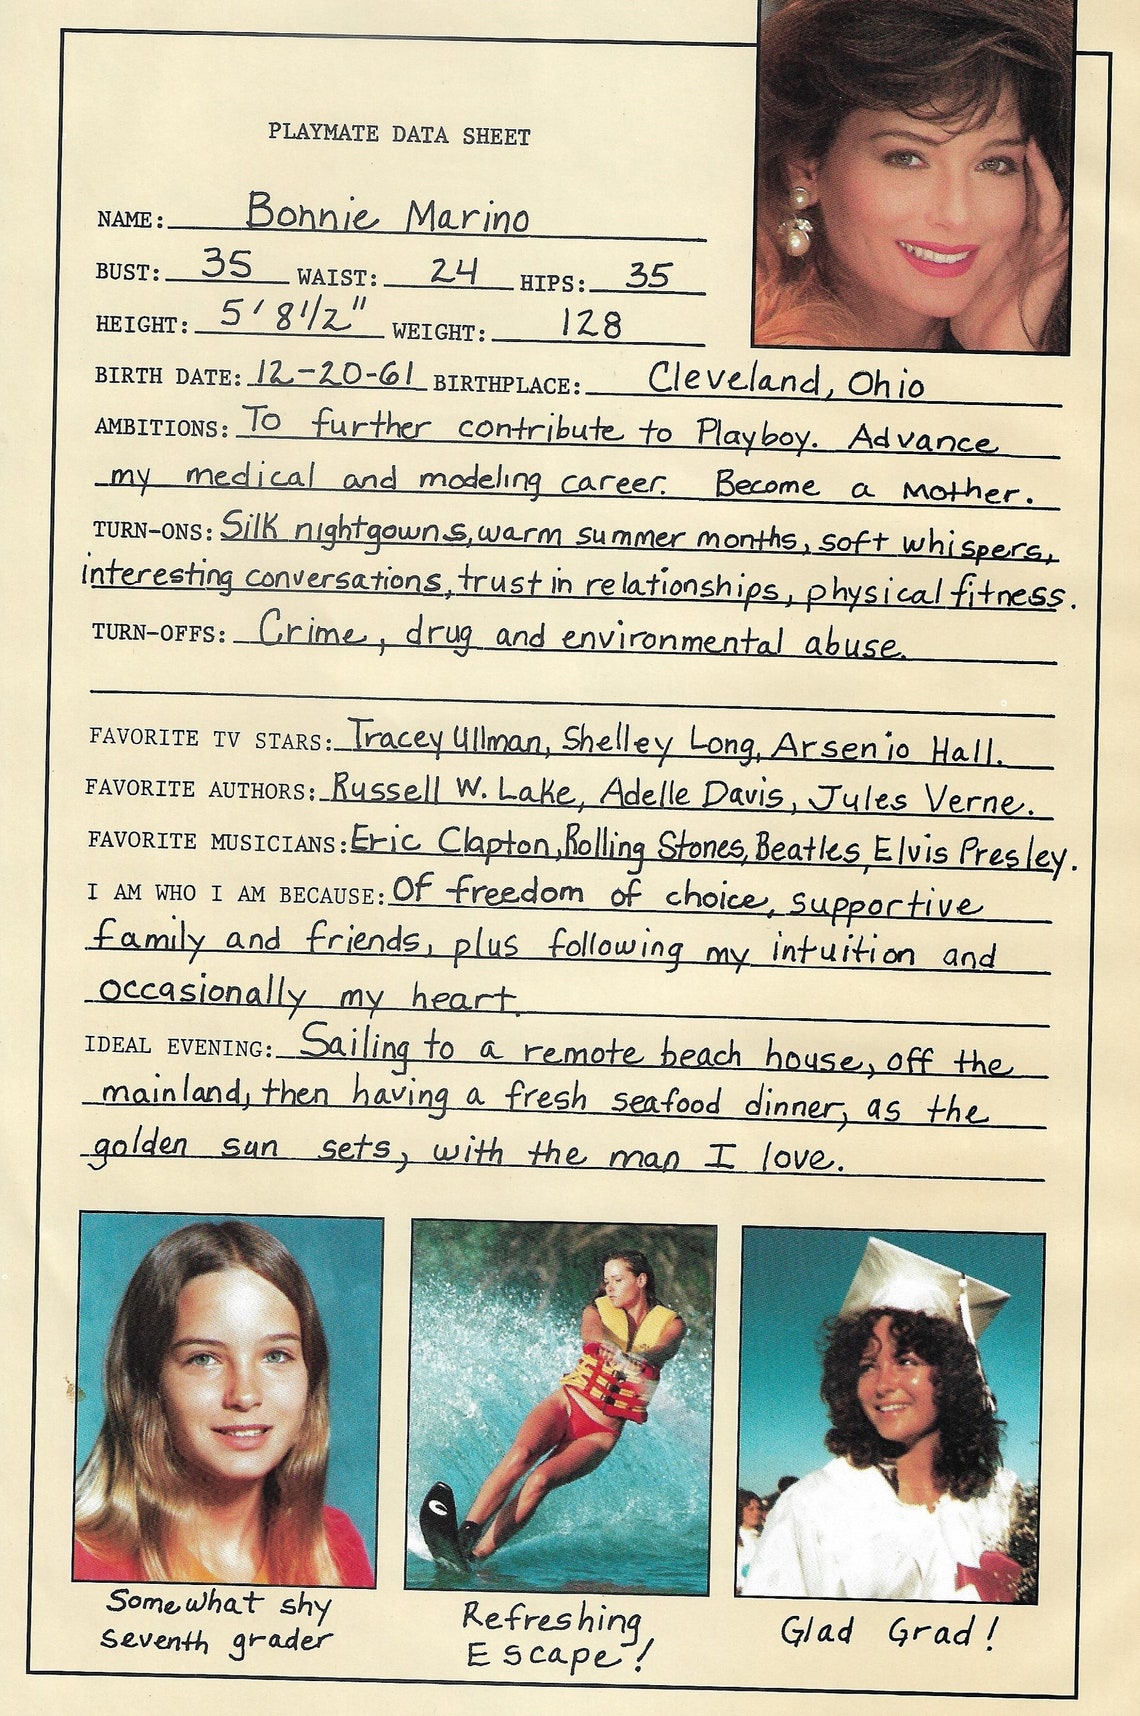 PLAYMATE DATA SHEET
NAME: Bonnie Marino
BUST: 35 WAIST: 24 HIPS: 35
HEIGHT: 5' 8 1/2" WEIGHT: 128
BIRTH DATE: 12-20-61 BIRTHPLACE: Cleveland, Ohio
AMBITIONS: To further contribute to Playboy. Advance
my medical and modeling career. Become a Mother.
TURN-ONS: Silk nightgowns, warm summer months, soft whispers,
interesting conversations, trust in relationships, physical fitness.
TURN-OFFS: Crime, drug and environmental abuse.
FAVORITE TV STARS: Tracey Ullman, Shelley Long, Arsenio Hall.
FAVORITE AUTHORS: Russell W. Lake, Adelle Davis, Jules Verne.
FAVORITE MUSICIANS: Eric Clapton, Rolling Stones, Beatles, Elvis Presley.
I AM WHO I AM BECAUSE: Of freedom of choice, supportive
family and friends, plus following my intuition and
occasionally my heart.
IDEAL EVENING: Sailing to a remote beach house, off the
mainland, then having a fresh seafood dinner, as the
golden sun sets, with the man I love.
Somewhat shy
seventh grader
Refreshing
Escape!
Glad Grad!